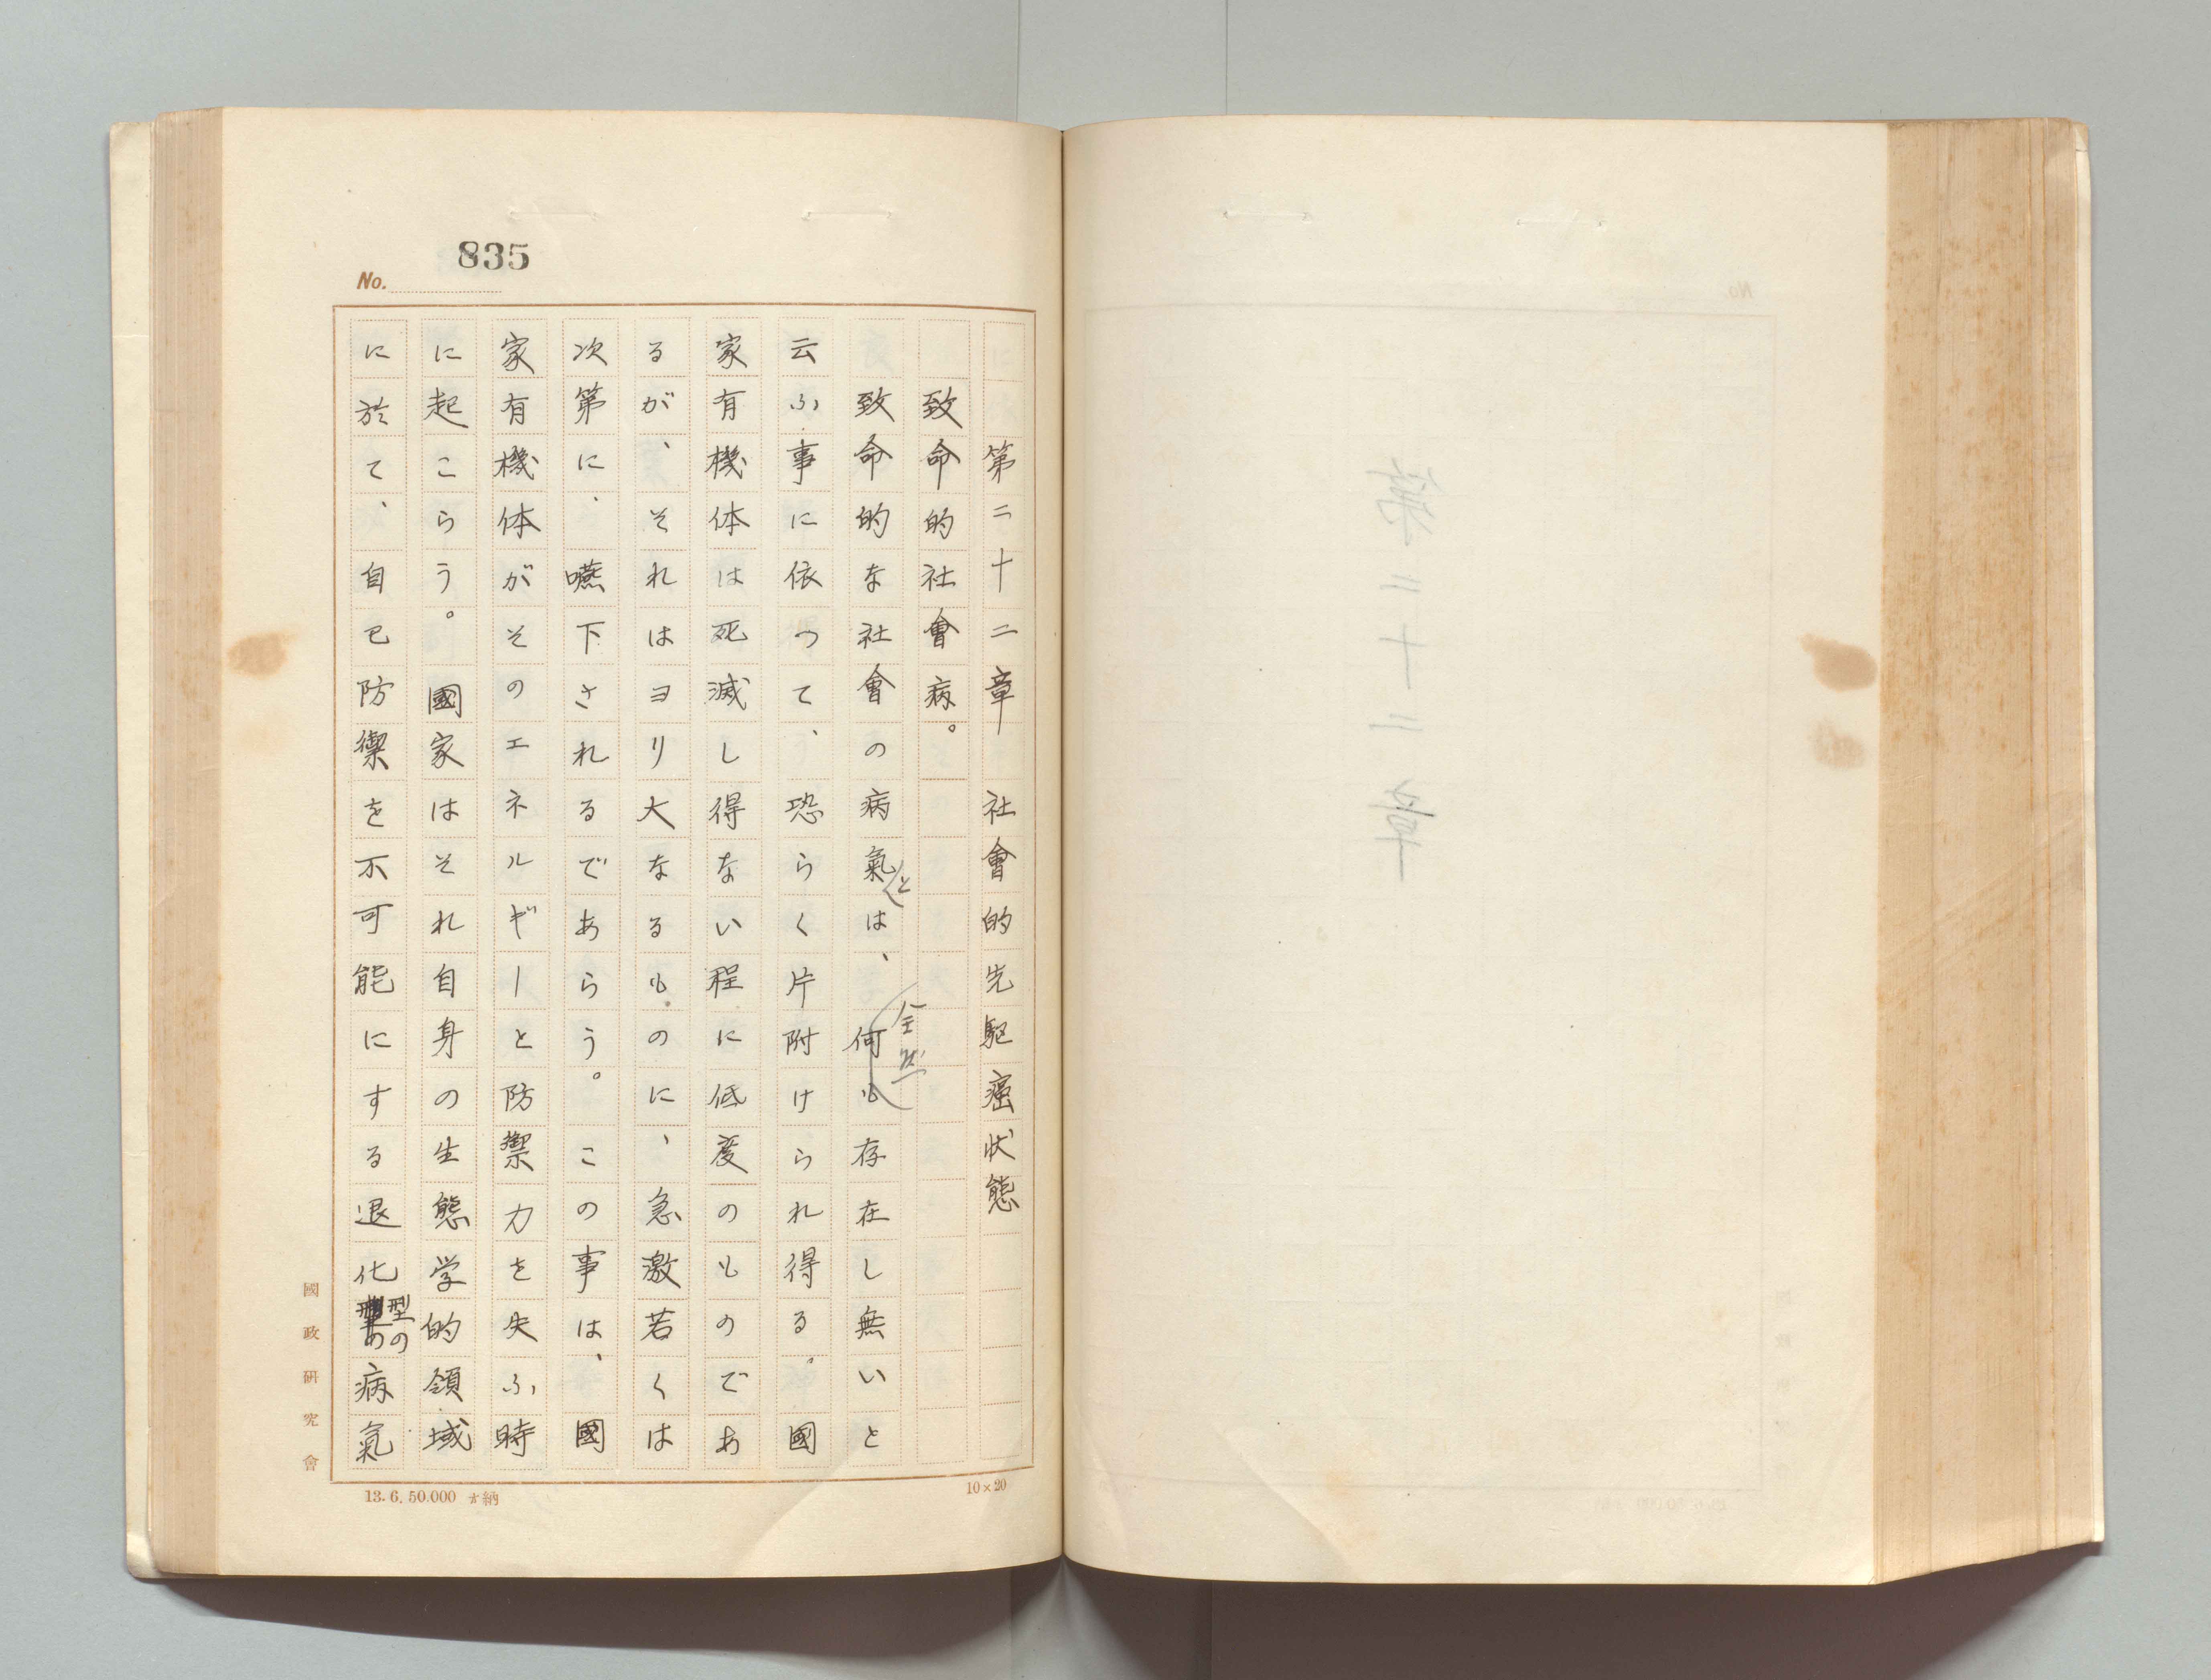 835
No.
第二十二章 社會的先駆癌状態
致命的社會病。
致命的な社會の病氣とは、全然何も存在し無いと
云ふ事に依つて、恐らく片附けられ得る。國
家有機体は死滅し得ない程に低度のものであ
るが、それはヨリ大なるものに、急激若くは
次第に、嚥下されるであらう。この事は、國
家有機体がそのエネルギーと防禦力を失ふ時
に起こらう。國家はそれ自身の生態学的領域
に於て、自己防禦を不可能にする退化型の病氣
國政研究會
13.6.50.000 納
10×20
第二十二章